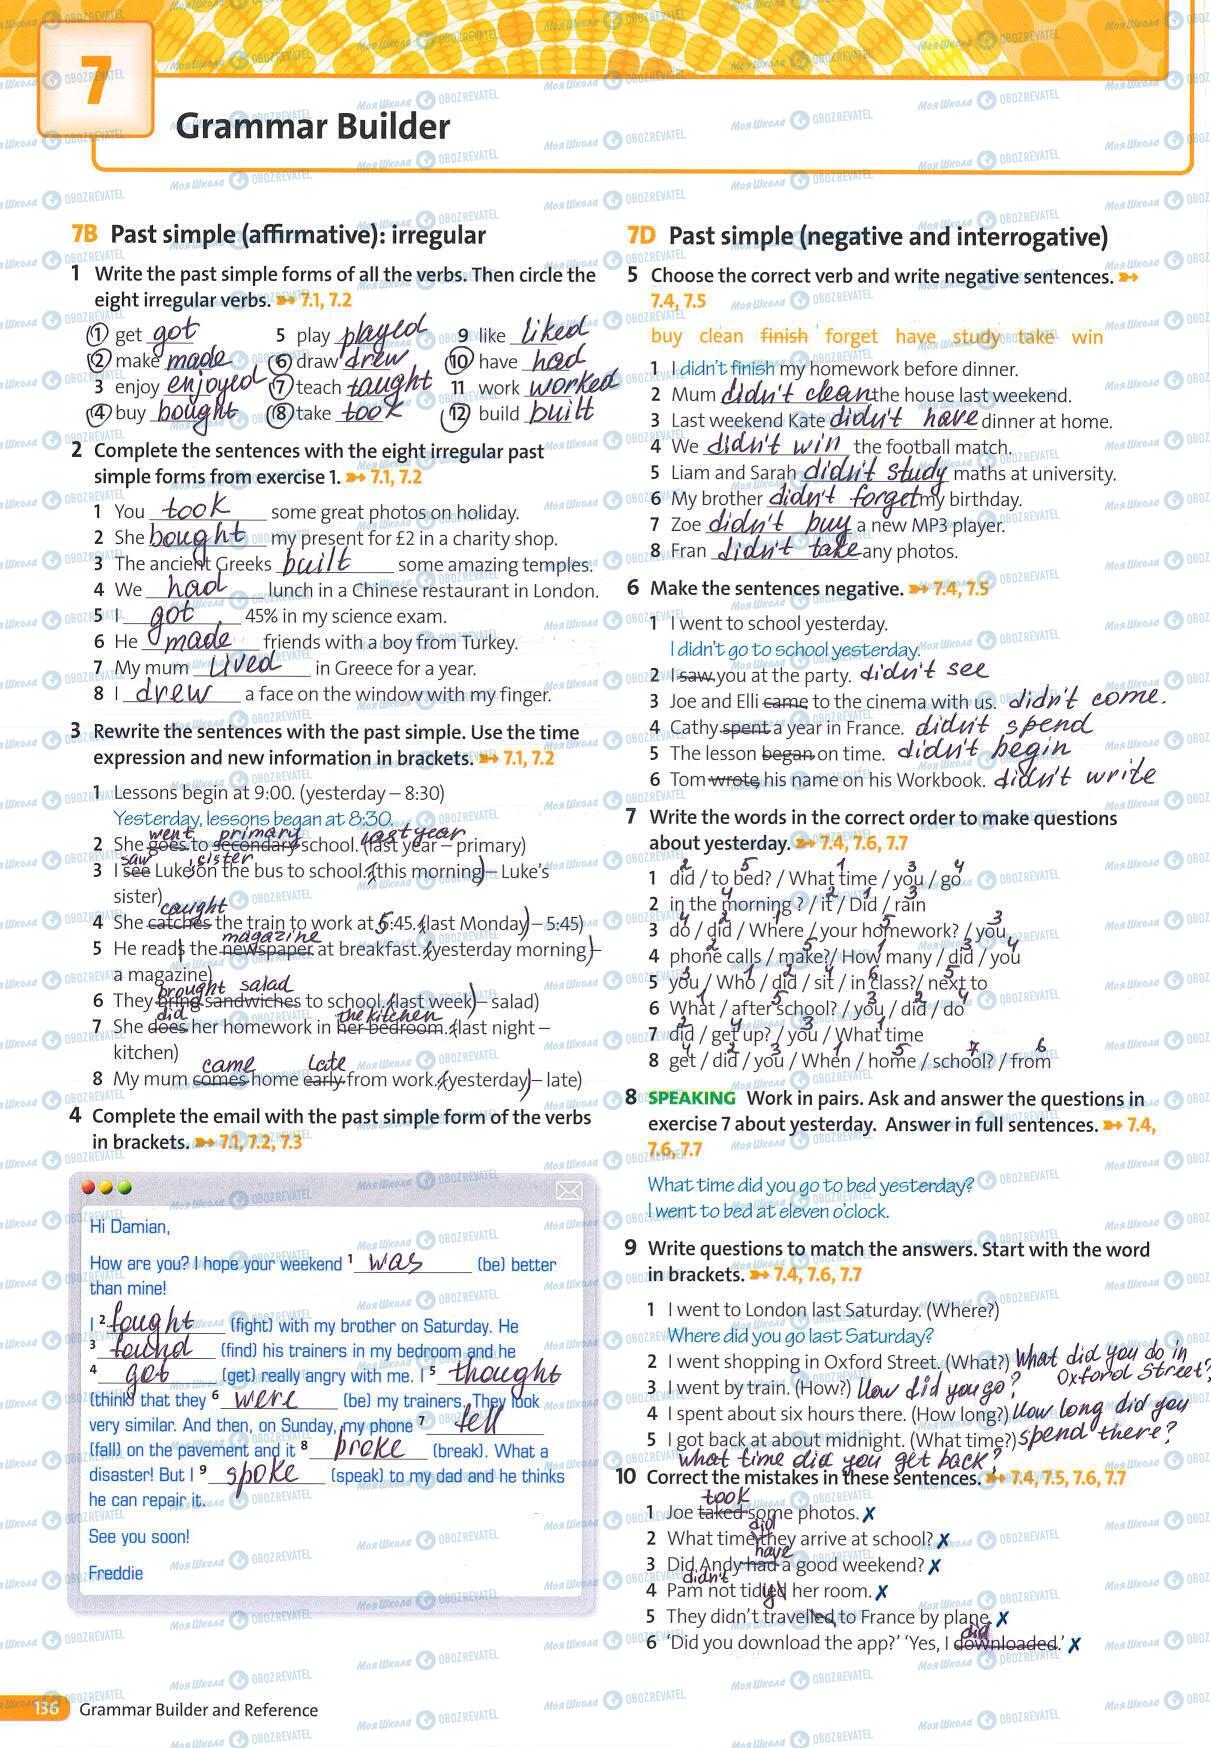 7
Grammar Builder
7B Past simple (affirmative): irregular
1 Write the past simple forms of all the verbs. Then circle the
eight irregular verbs. ➳ 7.1, 7.2
1 get got 5 play played 9 like liked
2 make made 6 draw drew 10 have had
3 enjoy enjoyed 7 teach taught 11 work worked
4 buy bought 8 take took 12 build built
2 Complete the sentences with the eight irregular past
simple forms from exercise 1. ➳ 7.1, 7.2
1 You took some great photos on holiday.
2 She bought my present for £2 in a charity shop.
3 The ancient Greeks built some amazing temples.
4 We had lunch in a Chinese restaurant in London.
5 I got 45% in my science exam.
6 He made friends with a boy from Turkey.
7 My mum lived in Greece for a year.
8 I drew a face on the window with my finger.
3 Rewrite the sentences with the past simple. Use the time
expression and new information in brackets. ➳ 7.1, 7.2
1 Lessons begin at 9:00. (yesterday – 8:30)
Yesterday, lessons began at 8:30.
went primary last year
2 She goes to secondary school. (last year – primary)
saw 's sister
3 I see Luke on the bus to school. (this morning) – Luke's
sister)
caught
4 She catches the train to work at 6:45. (last Monday) – 5:45)
magazine
5 He reads the newspaper at breakfast. (yesterday morning) –
a magazine)
brought salad
6 They bring sandwiches to school. (last week) – salad)
did the kitchen
7 She does her homework in her bedroom. (last night –
kitchen)
came late
8 My mum comes home early from work. (yesterday) – late)
4 Complete the email with the past simple form of the verbs
in brackets. ➳ 7.1, 7.2, 7.3
Hi Damian,
How are you? I hope your weekend 1 was (be) better
than mine!
I 2 fought (fight) with my brother on Saturday. He
3 found (find) his trainers in my bedroom and he
4 got (get) really angry with me. I 5 thought
(think) that they 6 were (be) my trainers. They look
very similar. And then, on Sunday, my phone 7 tell
(fall) on the pavement and it 8 broke (break). What a
disaster! But I 9 spoke (speak) to my dad and he thinks
he can repair it.
See you soon!
Freddie
7D Past simple (negative and interrogative)
5 Choose the correct verb and write negative sentences. ➳
7.4, 7.5
buy clean finish forget have study take win
1 I didn't finish my homework before dinner.
2 Mum didn't clean the house last weekend.
3 Last weekend Kate didn't have dinner at home.
4 We didn't win the football match.
5 Liam and Sarah didn't study maths at university.
6 My brother didn't forget my birthday.
7 Zoe didn't buy a new MP3 player.
8 Fran didn't take any photos.
6 Make the sentences negative. ➳ 7.4, 7.5
1 I went to school yesterday.
I didn't go to school yesterday.
2 I saw you at the party. didn't see
3 Joe and Elli came to the cinema with us. didn't come.
4 Cathy spent a year in France. didn't spend
5 The lesson began on time. didn't begin
6 Tom wrote his name on his Workbook. didn't write
7 Write the words in the correct order to make questions
about yesterday. ➳ 7.4, 7.6, 7.7
2 5 1 3 4
1 did / to bed? / What time / you / go
4 2 1 3
2 in the morning ? / it / Did / rain
4 2 1 5 3
3 do / did / Where / your homework? / you
2 5 1 3 4
4 phone calls / make? / How many / did / you
3 1 2 4 6 5
5 you / Who / did / sit / in class? / next to
1 5 3 2 4
6 What / after school? / you / did / do
2 4 3 1
7 did / get up? / you / What time
4 2 3 1 5 7 6
8 get / did / you / When / home / school? / from
8 SPEAKING Work in pairs. Ask and answer the questions in
exercise 7 about yesterday. Answer in full sentences. ➳ 7.4,
7.6, 7.7
What time did you go to bed yesterday?
I went to bed at eleven o'clock.
9 Write questions to match the answers. Start with the word
in brackets. ➳ 7.4, 7.6, 7.7
1 I went to London last Saturday. (Where?)
Where did you go last Saturday?
2 I went shopping in Oxford Street. (What?) What did you do in
Oxford Street?
3 I went by train. (How?) How did you go?
4 I spent about six hours there. (How long?) How long did you
spend there?
5 I got back at about midnight. (What time?)
what time did you get back?
10 Correct the mistakes in these sentences. ➳ 7.4, 7.5, 7.6, 7.7
took
1 Joe taked some photos. ✗
did
2 What time they arrive at school? ✗
have
3 Did Andy had a good weekend? ✗
didn't
4 Pam not tidied her room. ✗
y
5 They didn't travelled to France by plane. ✗
did
6 'Did you download the app?' 'Yes, I downloaded.' ✗
136 Grammar Builder and Reference
МояШкола OBOZREVATEL